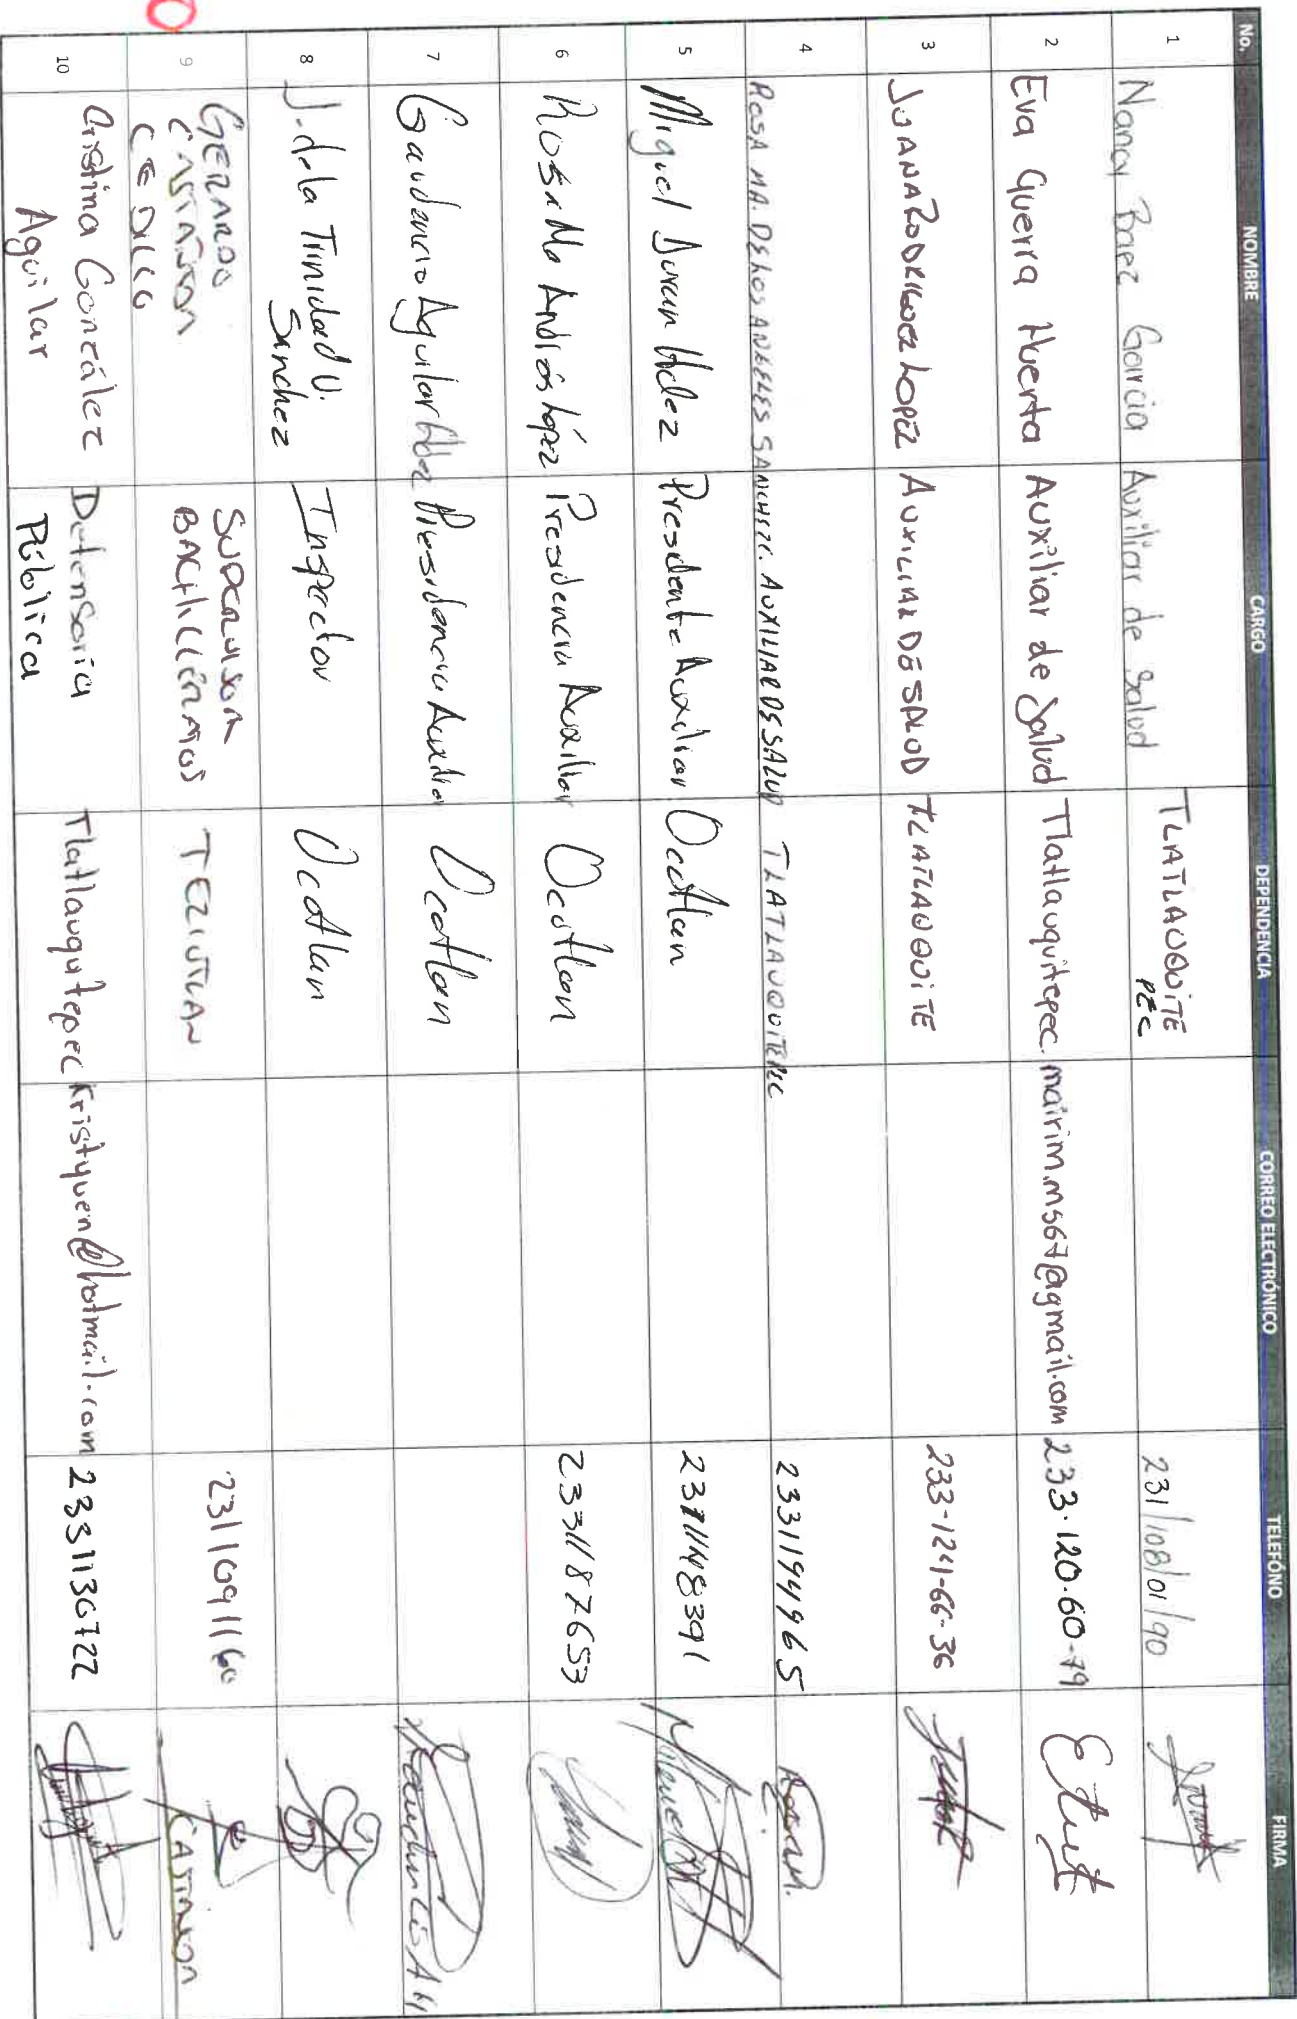 No. NOMBRE CARGO DEPENDENCIA CORREO ELECTRÓNICO TELEFÓNO FIRMA
1 Nancy Baez Garcia Auxiliar de Salud TLATLAUQUITE 231/108/01/90
PEC
2 Eva Guerra Huerta Auxiliar de Salud Tlatlauquitepec. mairim.ms67@gmail.com 233.120.60-79
3 JUANA RODRIGUEZ LOPEZ AUXILIAR DE SALUD TLATLAUQUITE 233-121-66-36
4 ROSA MA. DE LOS ANGELES SANCHEZ. AUXILIAR DE SALUD TLATLAUQUITEPEC 2331194965
5 Miguel Duran Hdez Presidente Auxiliar Ocotlan 2311148391
6 Rosa Ma Andres López Presidencia Auxiliar Ocotlan 2331187653
7 Gaudencio Aguilar Hdez Presidencia Auxiliar Ocotlan
8 J. de la Trinidad V. Inspector Ocotlan
Sanchez
9 GERARDO SUPERVISOR TEZIUTLAN 2311091160
CASTAÑON BACHILLERATOS
CEDILLO CASTAÑON
10 Cristina González Defensoria Tlatlauquitepec Kristyuen@hotmail.com 2331130722
Aguilar Pública